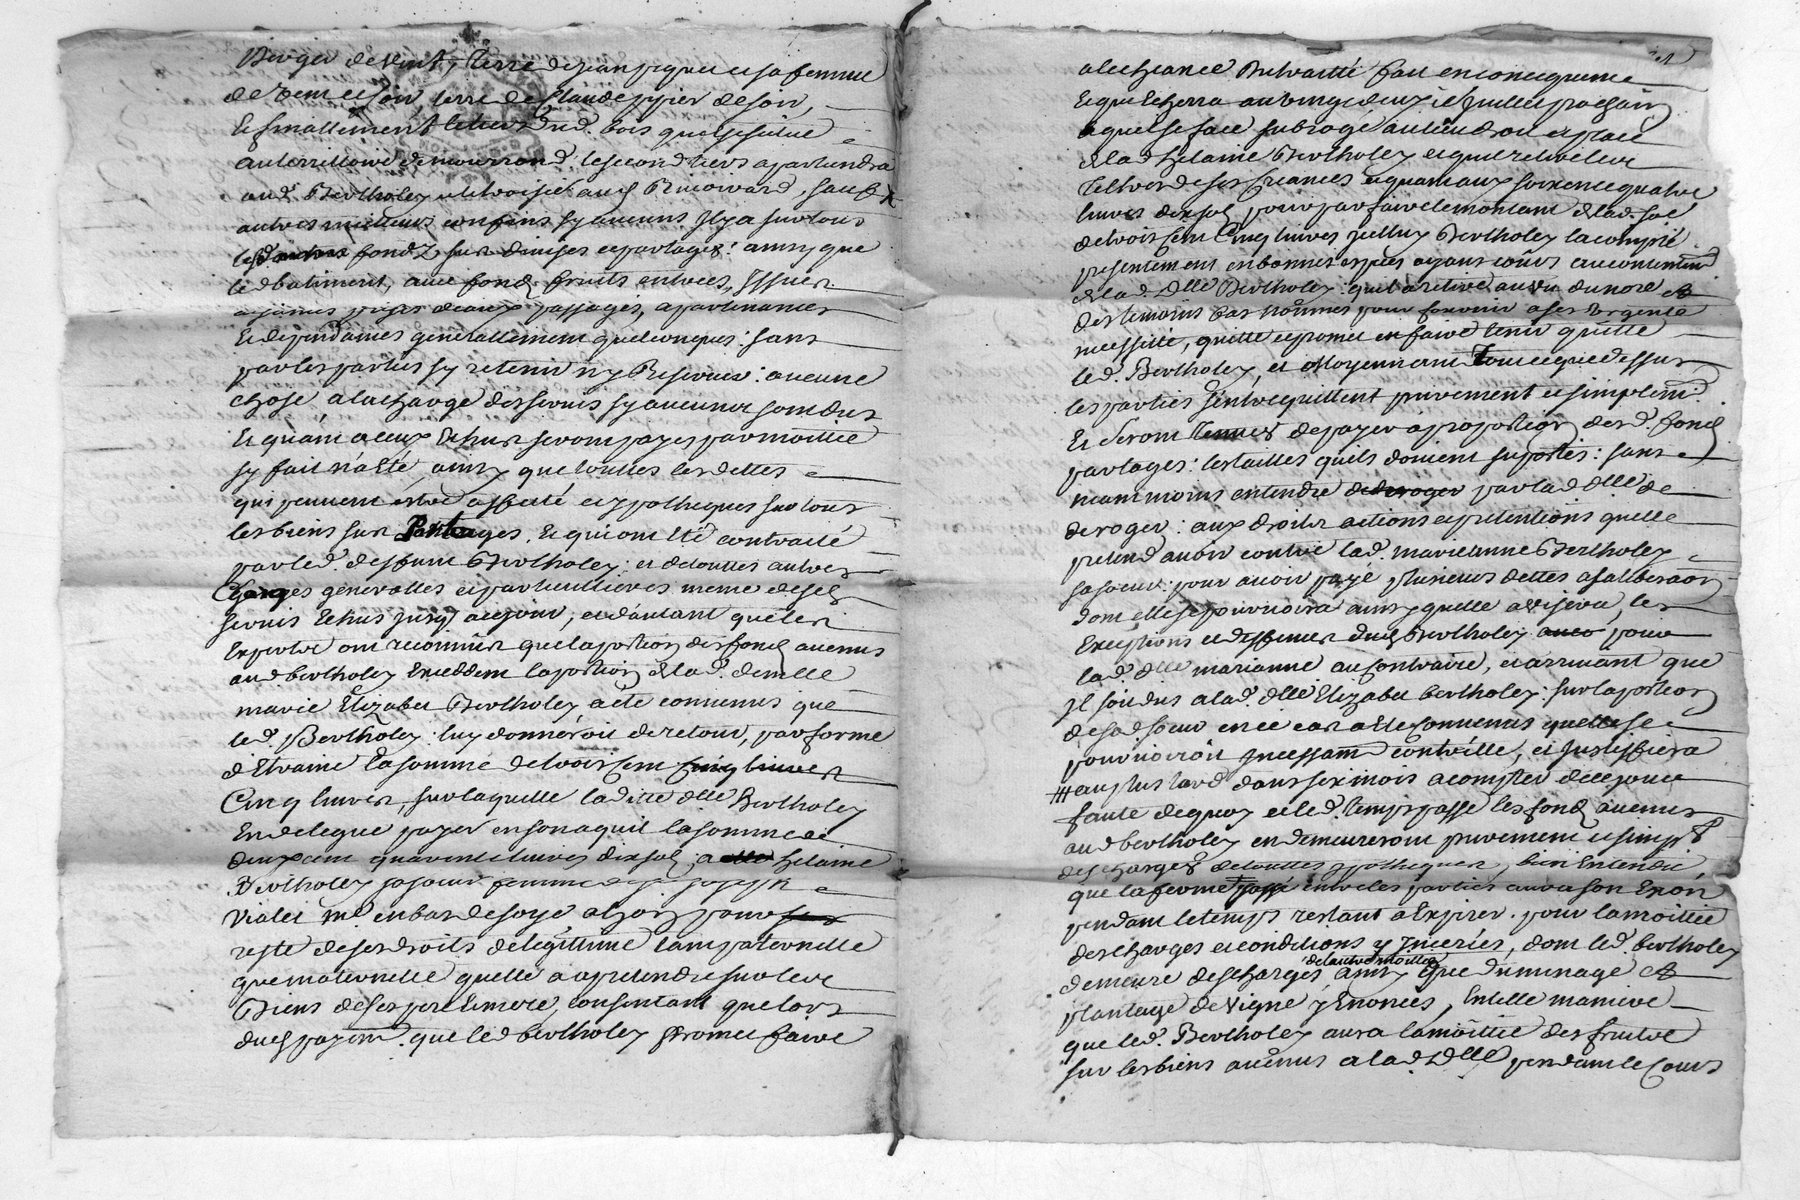 Verger de vent, terre de jean piquet et sa femme
de bize et soir, terre de Claude pipier de soir,
Et finallement le tiers dud. bois quy se situe
au territtoire de mourrond le second tiers apartiendra
aud. Bertholey et troisie. aud. sauf
autres meilleurs confins sy aucuns Il y a sur tous
fondz sus divises et partages: ainsy que
led batiment, avec fond fruits entrees, Issues
aisances prises deaux passages, apartenances
Et dependances generallement quelconques: sans
par les parties sy retenir ny Reserver: aucune
chose a la charge des servis sy aucuns sont dus
Et quant a ceux Echus seront payes par moittie
sy fait n'a Eté, ainsy que touttes les dettes
qui peuvent etre affecté et ypotheques sur tous
les biens sus Partages, Et qui ont Eté contraité
par led. deffunt Bertholey: et de touttes autres
Charges generalles et particullieres meme desd
servis Echus jusqu a ce jour, et d'autant que les
Expertz ont reconnus que la portion des fond avenus
aud bertholey Exceddent la portion de lad. demelle
marie Elizabet Bertholey a eté convenus que
led. Bertholey: luy donneroit de retour, par forme
d'Etraine la somme de trois cent cinq livres
Cinq livres, sur laquelle laditte delle Bertholey
En delegue payer en son aquit la somme de
deux cent quarente livres dix sol: a helaine
Bertholey sa soeur femme de sr. joseph
Vialet md en bas de soye a lyon pour
reste de ses droits de legittime tant paternelle
que maternelle quelle a a pretendre sur les
Biens de ses pere Et mere, consentant que lors
dud payemt. que led bertholey promet faire
a lecheance du traitté fait en consequence
Et que Echerra au vingt deux juillet prochain
aquel se face subrogé au lieu droit et place
de lad helaine Bertholey et quil retire leur
Tiltres de ses creances et quant aux soixente quatre
livres dix sol pour parfaire le montant de lad. soe
de trois cent Cinq livres jcelluy Bertholey la compté
presentement en bonnes espèces ayant cours au contentemt
de lad. Delle Bertholey: qui la retiré, au vu du nore. et
des temoins bas nommes pour fournir a ses urgente
necessité, quitte et promet en faire tenir quitte
led. Bertholey, et Moyennant Tout ce que dessus
les parties s'entrequittent purement et simplemt.
Et seront tenues de payer a proportion desd. fond
partages: les tailles quils doivent suportés: sans
neammoins entendre de deroger par lad delle de
deroger: aux droits actions et pretentions quelle
pretend avoir contre lad. marieanne Bertholey
sa soeur: pour avoir payé plusieurs dettes a sa liberaon
dont elle se pourvoira ainsy quelle avisera, les
Exceptions et deffences dud Bertholey avec pour
lad. delle marianne au contraire, et arrivant que
Jl soit dus a lad. delle Elizabet bertholey: sur la portion
de sad soeur en ce cas a eté convenus quelle se
pourvoiroit incessamt contr'elle, et Justiffiera
au plus tard dans six mois a compter de ce jour
faute de quoy et led. temps passé les fond avenus
aud bertholey en demeureront purement et simpt
des charges de touttes ypotheques, bien Entendu
que la ferme passé entre les parties aura son Exon
pendant le temps restant a Expirer. pour la moittie
des charges et conditions y Jnceriés, dont led. bertholey
de lautre moittiee
demeure descharges ainsy que du minage et
plantage de vigne y Enonces, En telle maniere
que led. Bertholey aura la moittie des fruits
sur les biens avenus a lad. Delle pendant le Cours